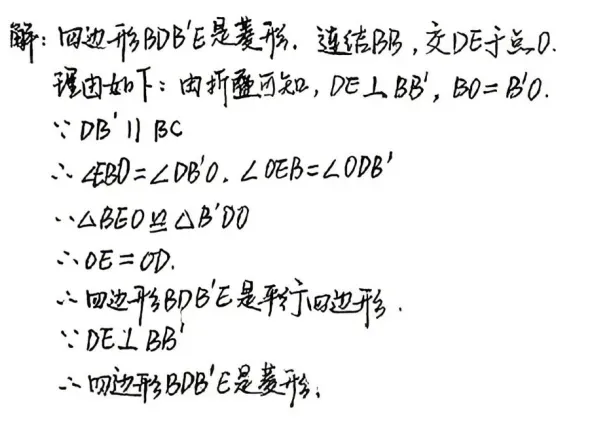 解：四边形BDB'E是菱形．连结BB'，交DE于点O．
理由如下：由折叠可知，DE⊥BB'，BO=B'O．
∵DB'∥BC
∴∠EBO=∠DB'O．∠OEB=∠ODB'
∴△BEO≌△B'DO
∴OE=OD．
∴四边形BDB'E是平行四边形．
∵DE⊥BB'
∴四边形BDB'E是菱形．